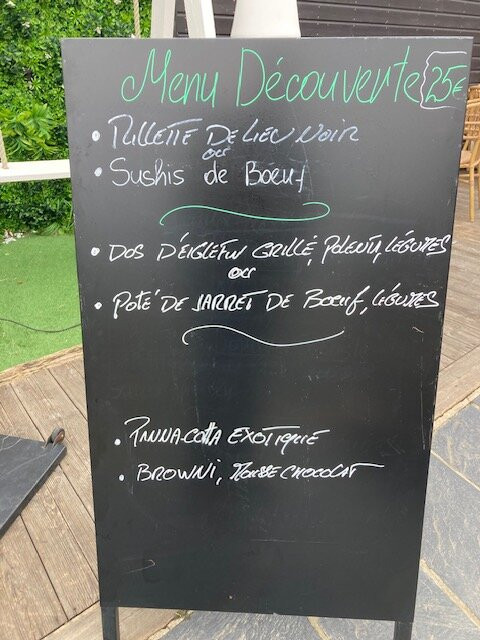 Menu Découverte 25€
• RILLETTE DE LIEU NOIR
ou
• Sushis de Bœuf
• DOS D'EIGLEFIN GRILLÉ, POLENTA, LÉGUMES
ou
• POTÉ DE JARRET DE BŒUF, LÉGUMES
• PANNACOTTA EXOTIQUE
• BROWNI, MOUSSE CHOCOLAT